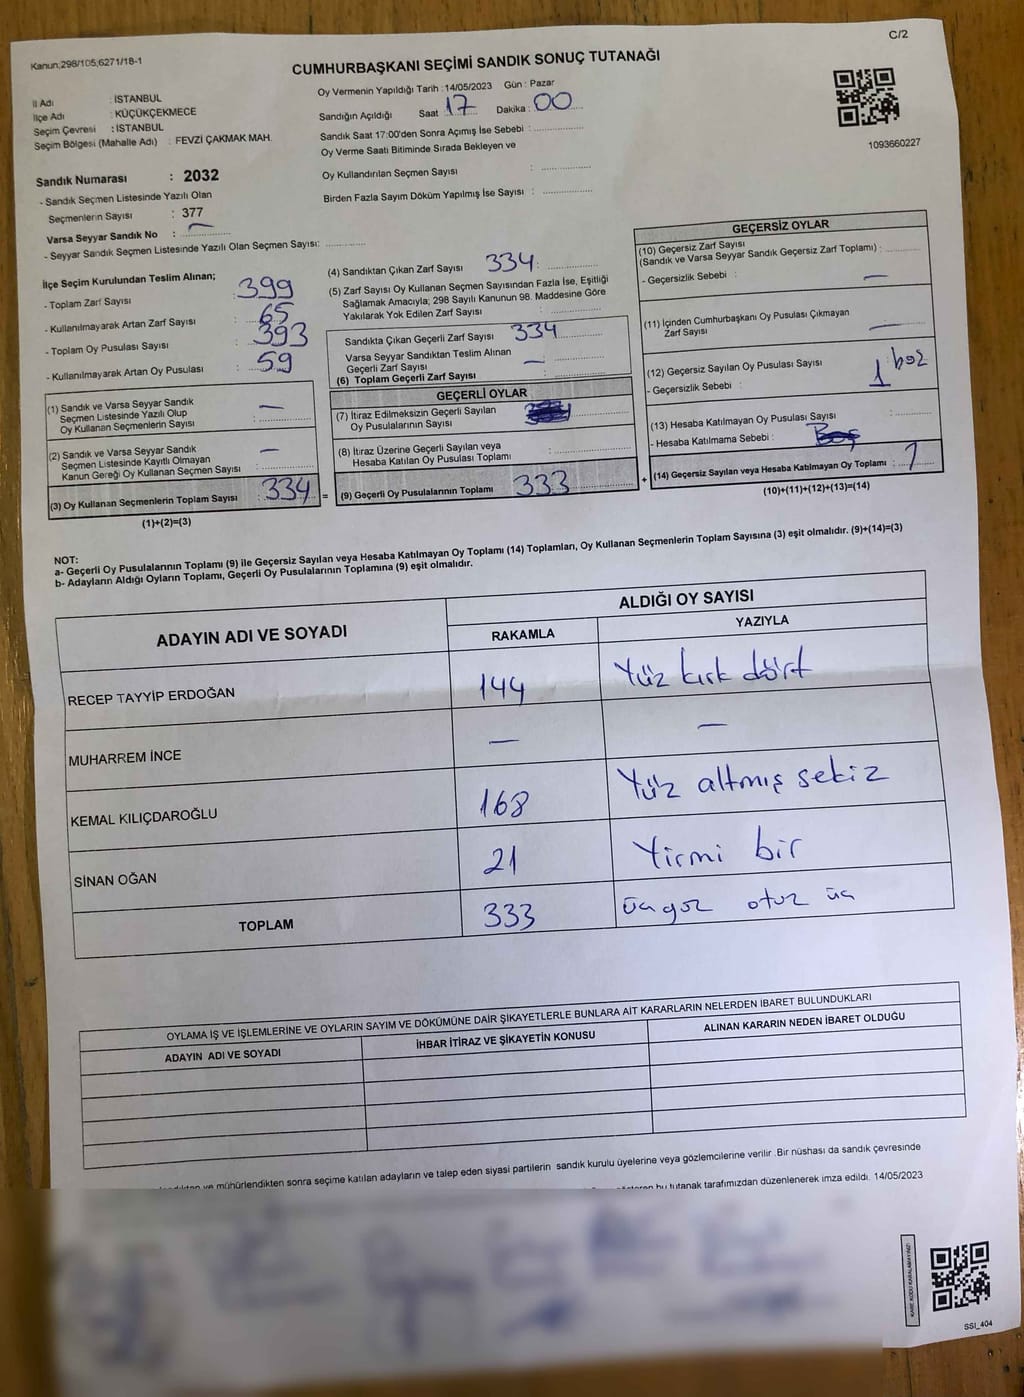 C/2
Kanun;298/105;6271/18-1
CUMHURBAŞKANI SEÇİMİ SANDIK SONUÇ TUTANAĞI
İl Adı : İSTANBUL
İlçe Adı : KÜÇÜKÇEKMECE
Seçim Çevresi : İSTANBUL
Seçim Bölgesi (Mahalle Adı) : FEVZİ ÇAKMAK MAH.
Oy Vermenin Yapıldığı Tarih : 14/05/2023 Gün : Pazar
Sandığın Açıldığı Saat 17 Dakika : 00
Sandık Saat 17:00'den Sonra Açımış İse Sebebi :
Oy Verme Saati Bitiminde Sırada Bekleyen ve
Oy Kullandırılan Seçmen Sayısı :
Birden Fazla Sayım Döküm Yapılmış İse Sayısı :
1093660227
Sandık Numarası : 2032
- Sandık Seçmen Listesinde Yazılı Olan
Seçmenlerin Sayısı : 377
Varsa Seyyar Sandık No : —
- Seyyar Sandık Seçmen Listesinde Yazılı Olan Seçmen Sayısı:
İlçe Seçim Kurulundan Teslim Alınan;
- Toplam Zarf Sayısı : 399
- Kullanılmayarak Artan Zarf Sayısı : 65
- Toplam Oy Pusulası Sayısı : 393
- Kullanılmayarak Artan Oy Pusulası : 59
(1) Sandık ve Varsa Seyyar Sandık
Seçmen Listesinde Yazılı Olup
Oy Kullanan Seçmenlerin Sayısı : —
(2) Sandık ve Varsa Seyyar Sandık
Seçmen Listesinde Kayıtlı Olmayan
Kanun Gereği Oy Kullanan Seçmen Sayısı : —
(3) Oy Kullanan Seçmenlerin Toplam Sayısı : 334 =
(1)+(2)=(3)
(4) Sandıktan Çıkan Zarf Sayısı 334 :
(5) Zarf Sayısı Oy Kullanan Seçmen Sayısından Fazla İse, Eşitliği
Sağlamak Amacıyla; 298 Sayılı Kanunun 98. Maddesine Göre
Yakılarak Yok Edilen Zarf Sayısı :
Sandıkta Çıkan Geçerli Zarf Sayısı 334 :
Varsa Seyyar Sandıktan Teslim Alınan
Geçerli Zarf Sayısı — :
(6) Toplam Geçerli Zarf Sayısı :
GEÇERLİ OYLAR
(7) İtiraz Edilmeksizin Geçerli Sayılan
Oy Pusulalarının Sayısı :
(8) İtiraz Üzerine Geçerli Sayılan veya
Hesaba Katılan Oy Pusulası Toplamı :
(9) Geçerli Oy Pusulalarının Toplamı 333 : +
GEÇERSİZ OYLAR
(10) Geçersiz Zarf Sayısı
(Sandık ve Varsa Seyyar Sandık Geçersiz Zarf Toplamı) :
- Geçersizlik Sebebi : —
(11) İçinden Cumhurbaşkanı Oy Pusulası Çıkmayan
Zarf Sayısı : —
(12) Geçersiz Sayılan Oy Pusulası Sayısı : 1 boş
- Geçersizlik Sebebi :
(13) Hesaba Katılmayan Oy Pusulası Sayısı :
- Hesaba Katılmama Sebebi : Boş
(14) Geçersiz Sayılan veya Hesaba Katılmayan Oy Toplamı : 1
(10)+(11)+(12)+(13)=(14)
NOT:
a- Geçerli Oy Pusulalarının Toplamı (9) ile Geçersiz Sayılan veya Hesaba Katılmayan Oy Toplamı (14) Toplamları, Oy Kullanan Seçmenlerin Toplam Sayısına (3) eşit olmalıdır. (9)+(14)=(3)
b- Adayların Aldığı Oyların Toplamı, Geçerli Oy Pusulalarının Toplamına (9) eşit olmalıdır.
ADAYIN ADI VE SOYADI ALDIĞI OY SAYISI
RAKAMLA YAZIYLA
RECEP TAYYİP ERDOĞAN 144 Yüz kırk dört
MUHARREM İNCE — —
KEMAL KILIÇDAROĞLU 168 Yüz altmış sekiz
SİNAN OĞAN 21 Yirmi bir
TOPLAM 333 üçyüz otuz üç
OYLAMA İŞ VE İŞLEMLERİNE VE OYLARIN SAYIM VE DÖKÜMÜNE DAİR ŞİKAYETLERLE BUNLARA AİT KARARLARIN NELERDEN İBARET BULUNDUKLARI
ADAYIN ADI VE SOYADI İHBAR İTİRAZ VE ŞİKAYETİN KONUSU ALINAN KARARIN NEDEN İBARET OLDUĞU
ve mühürlendikten sonra seçime katılan adayların ve talep eden siyasi partilerin sandık kurulu üyelerine veya gözlemcilerine verilir .Bir nüshası da sandık çevresinde
bu tutanak tarafımızdan düzenlenerek imza edildi. 14/05/2023
KARE KODU KARALAMAYINIZ!
SSI_404